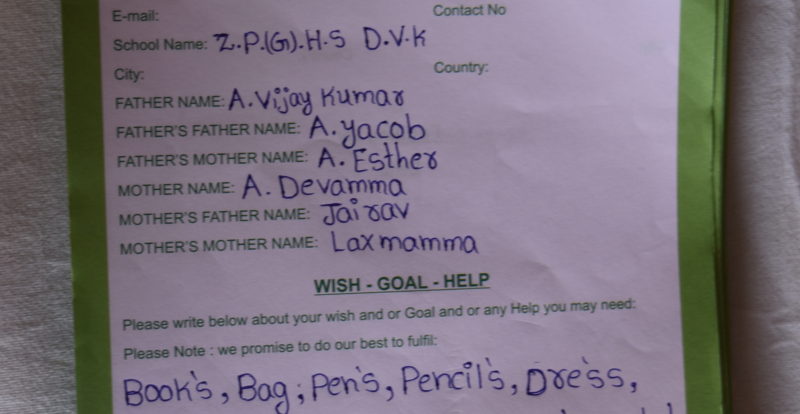 E-mail: Contact No
School Name: Z.P.(G).H.S D.V.K
City: Country:
FATHER NAME: A. Vijay Kumar
FATHER'S FATHER NAME: A. yacob
FATHER'S MOTHER NAME: A. Esther
MOTHER NAME: A. Devamma
MOTHER'S FATHER NAME: Jairav
MOTHER'S MOTHER NAME: Laxmamma
WISH - GOAL - HELP
Please write below about your wish and or Goal and or any Help you may need:
Please Note : we promise to do our best to fulfil:
Book's, Bag; Pen's, Pencil's, Dres's,